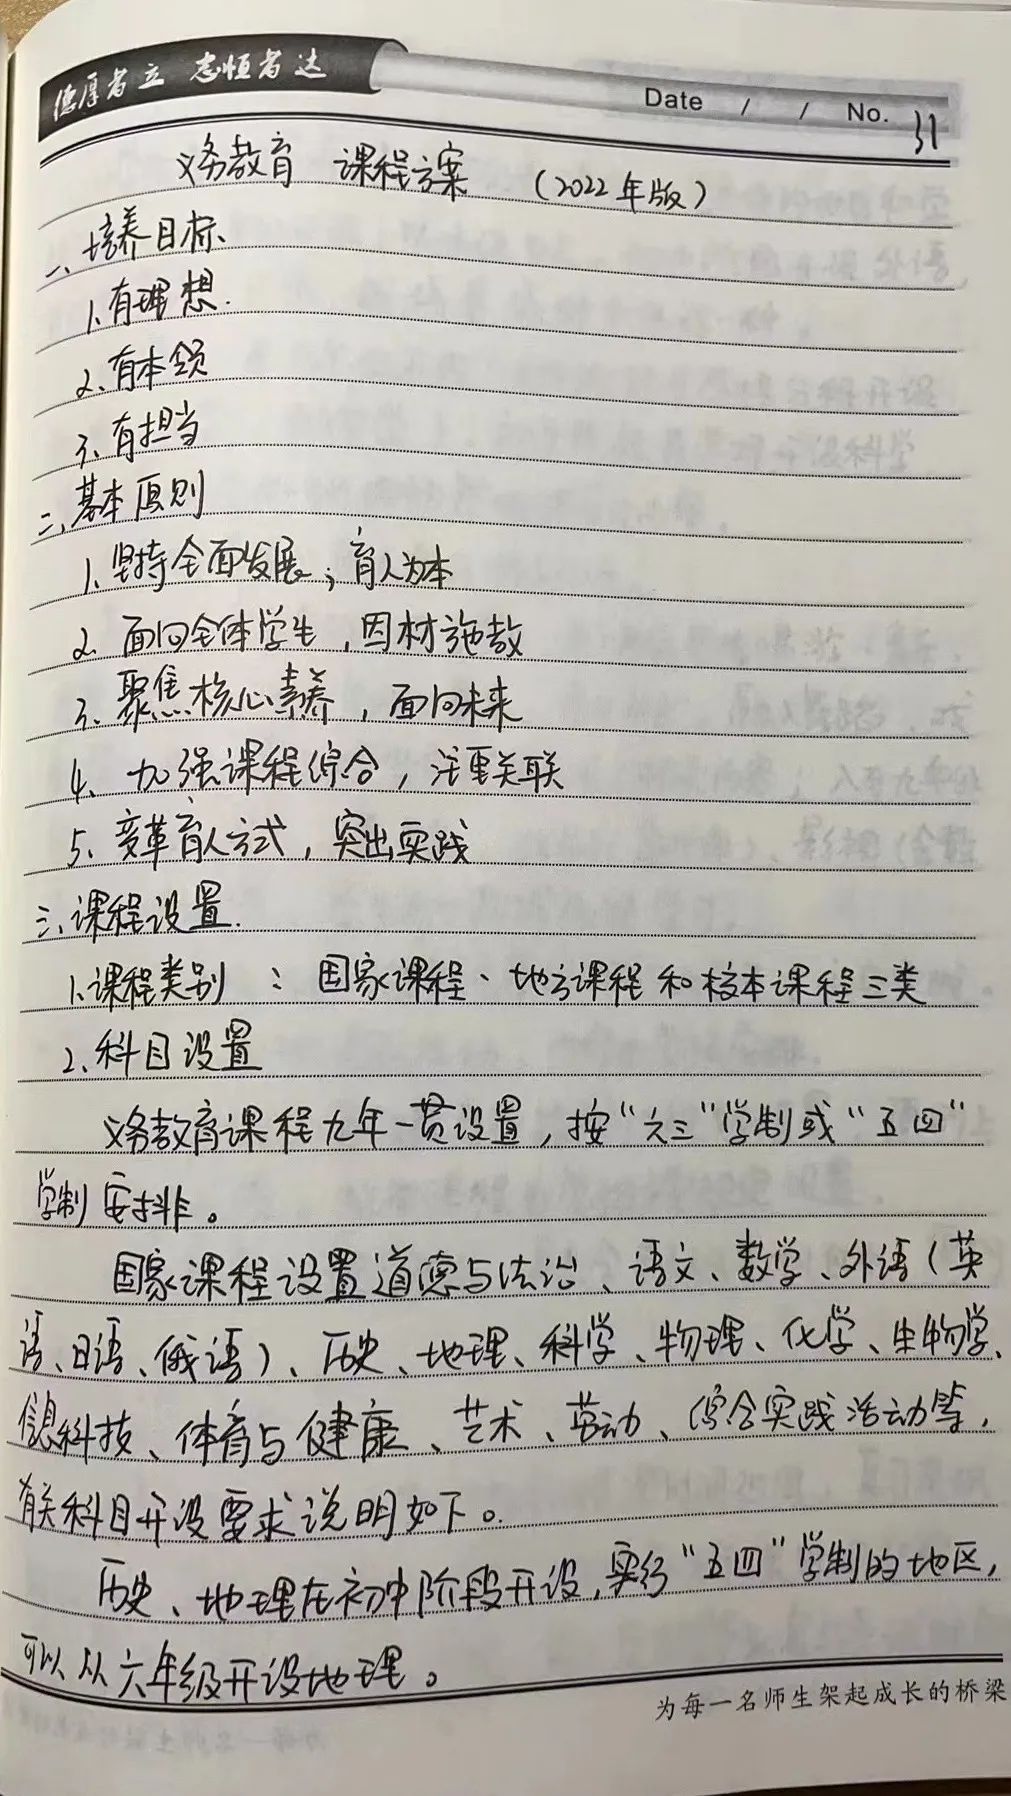 德厚者立 志恒者达
Date / / No. 31
义务教育 课程方案 (2022年版)
一、培养目标、
1、有理想.
2、有本领
3、有担当
二、基本原则
1、坚持全面发展，育人为本
2、面向全体学生，因材施教
3、聚焦核心素养，面向未来
4、加强课程综合，注重关联
5、变革育人方式，突出实践
三、课程设置.
1、课程类别 ： 国家课程、地方课程和校本课程三类
2、科目设置
义务教育课程九年一贯设置，按“六三”学制或“五四”
学制安排。
国家课程设置道德与法治、语文、数学、外语（英
语、日语、俄语）、历史、地理、科学、物理、化学、生物学、
信息科技、体育与健康、艺术、劳动、综合实践活动等，
有关科目开设要求说明如下。
历史、地理在初中阶段开设，实行“五四”学制的地区，
可以从六年级开设地理。
为每一名师生架起成长的桥梁